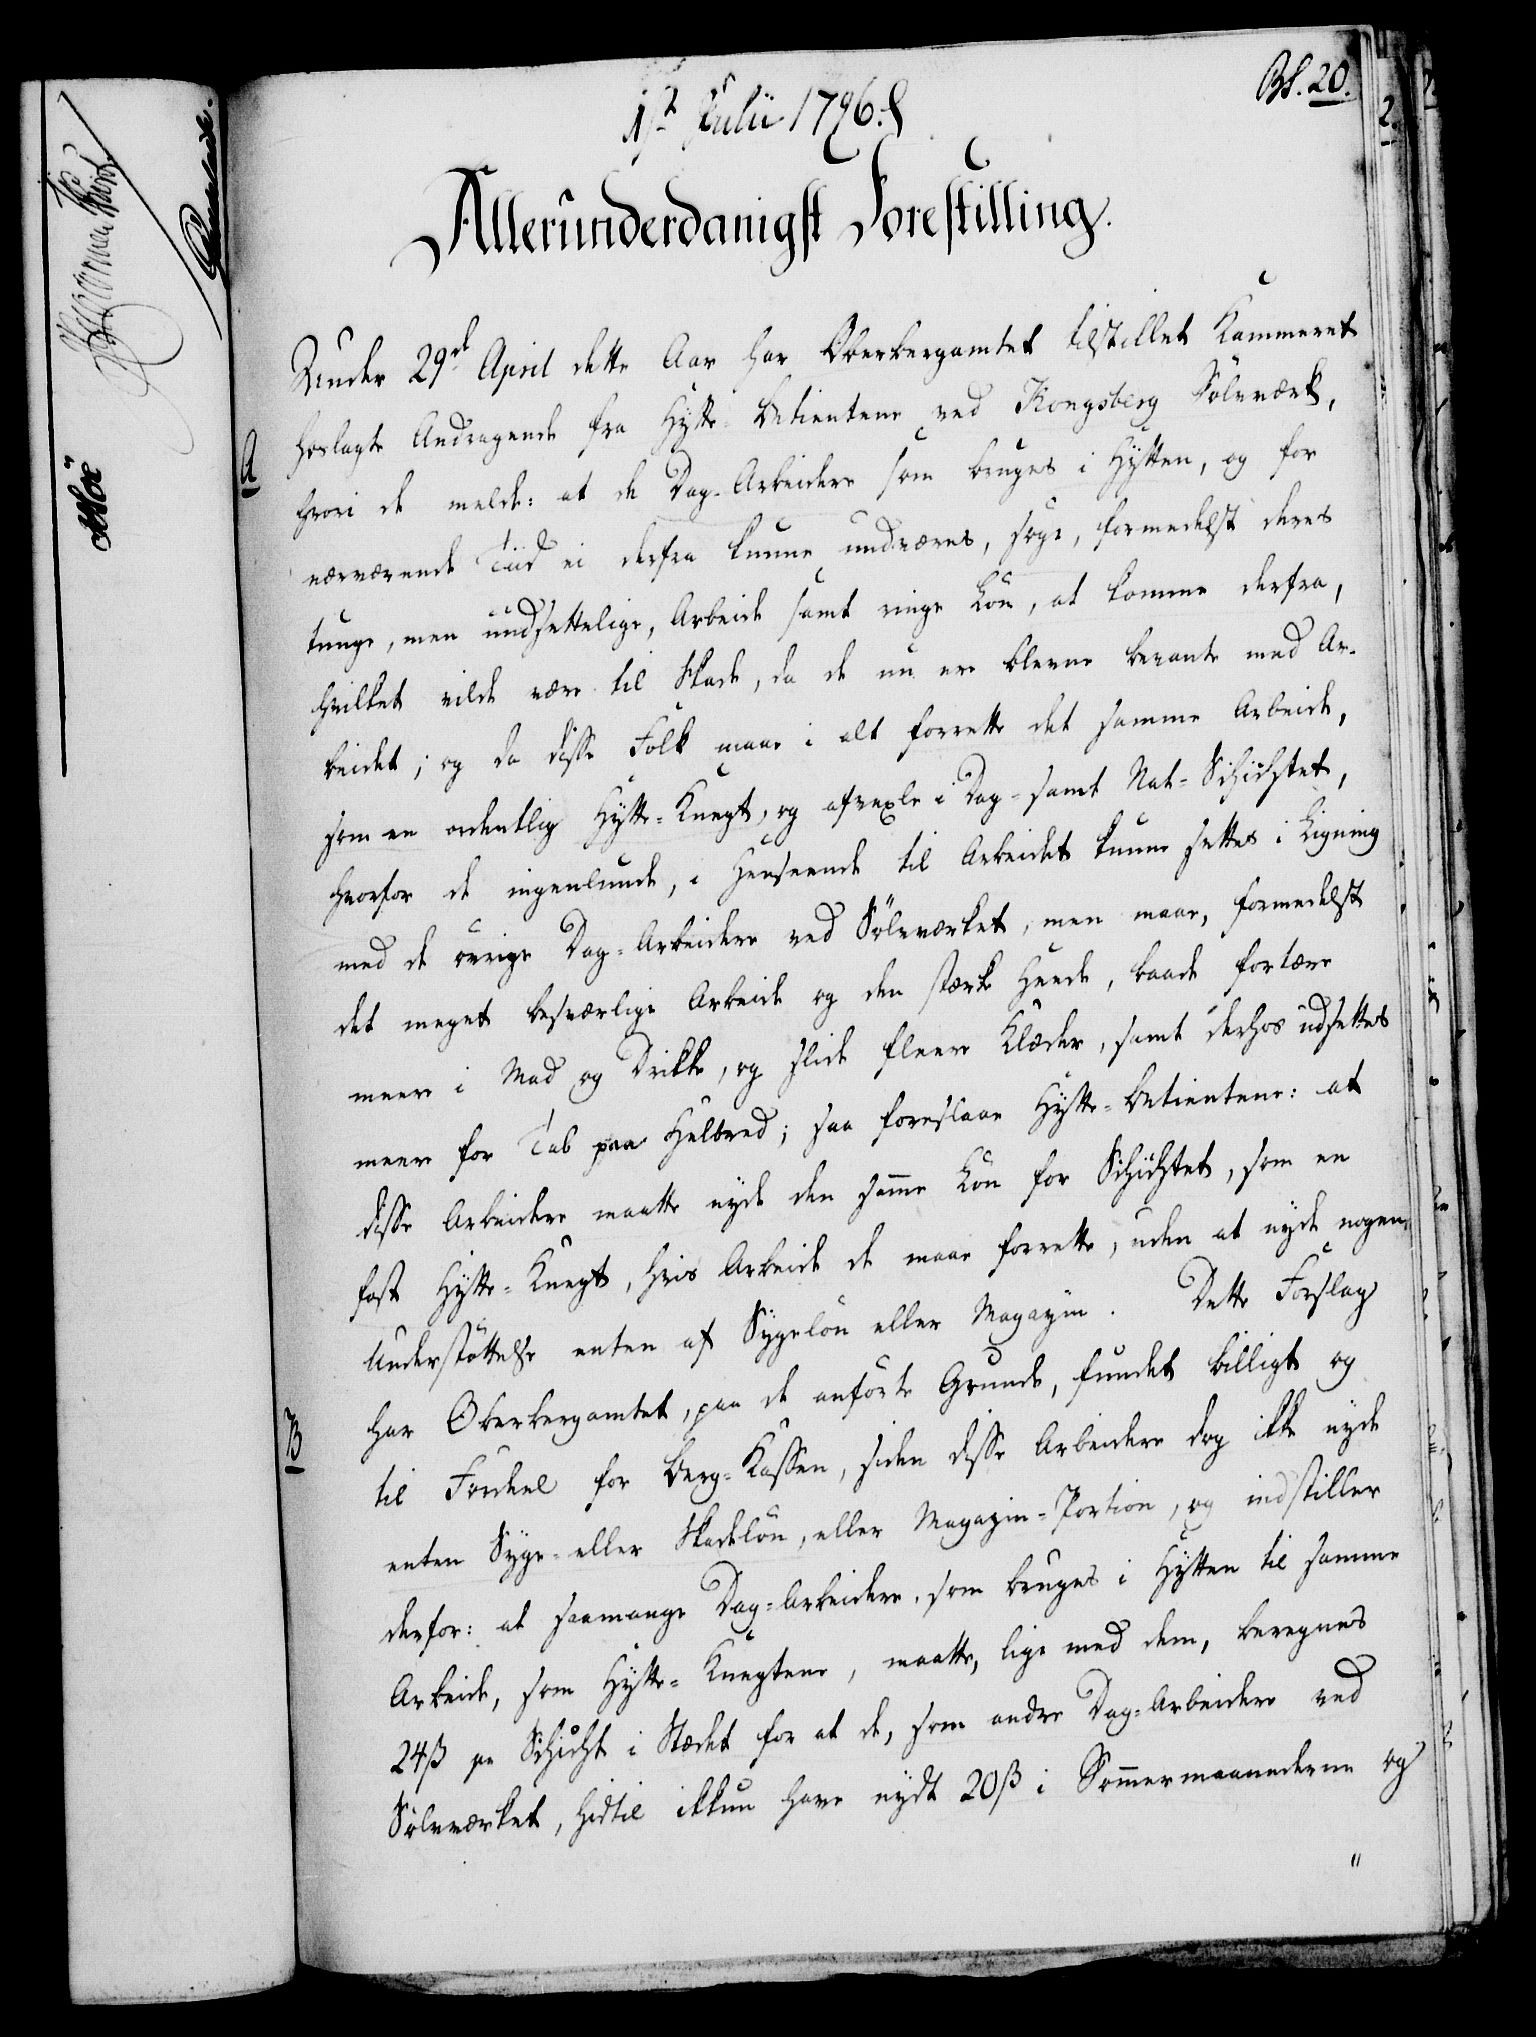 Bl. 20.
1ste Julii 1796.
Allerunderdanigst Forestilling.
Under 29de April dette Aar har Oberbergamtet tilstillet Kammeret
A
hoslagte Andragende fra Hytte-Betientene ved Kongsberg Sölvværk,
hvori de melde: at de Dag-Arbeidere som bruges i Hytten, og for
nærværende Tiid ei derfra kunne undværes, søge, formedelst deres
tunge, men uudsettelige, Arbeide samt ringe Lön, at komme derfra,
hvilket vilde være til Skade, da de nu ere blevne bevante med Ar-
beidet; og da disse Folk maae i alt forrette det samme Arbeide,
som en ordentlig Hytte-Knegt, og afvexle i Dag- samt Nat-Schichtet,
hvorfor de ingenlunde, i Henseende til Arbeidet kunne settes i Ligning
med de övrige Dag-Arbeidere ved Sölvværket, men maae, formedelst
det meget besværlige Arbeide og den stærke Heede, baade fortære
meere i Mad og Drikke, og slide fleere Klæder, samt derhos udsettes
meere for Tab paa Helbred; saa foreslaae Hytte-Betientene: at
disse Arbeidere maatte nyde den samme Lön for Schichtet, som en
fast Hytte-Knegt, hvis Arbeide de maae forrette, uden at nyde nogen
Understöttelse enten af Sygelön eller Magazin. Dette Forslag
B
har Oberbergamtet, paa de anförte Grunde, fundet billigt og
til Fordeel for Berg-Kassen, siden disse Arbeidere dog ikke nyde
enten Syge- eller Skadelön, eller Magazin-Portion, og indstiller
derfor: at saamange Dag-Arbeidere, som bruges i Hytten til samme
Arbeide, som Hytte-Knegtene, maatte, lige med dem, beregnes
24ß pr Schicht i Stædet for at de, som andre Dag-Arbeidere ved
Sölvværket, hidtil ikkun have nydt 20ß i Sommermaanederne og
"